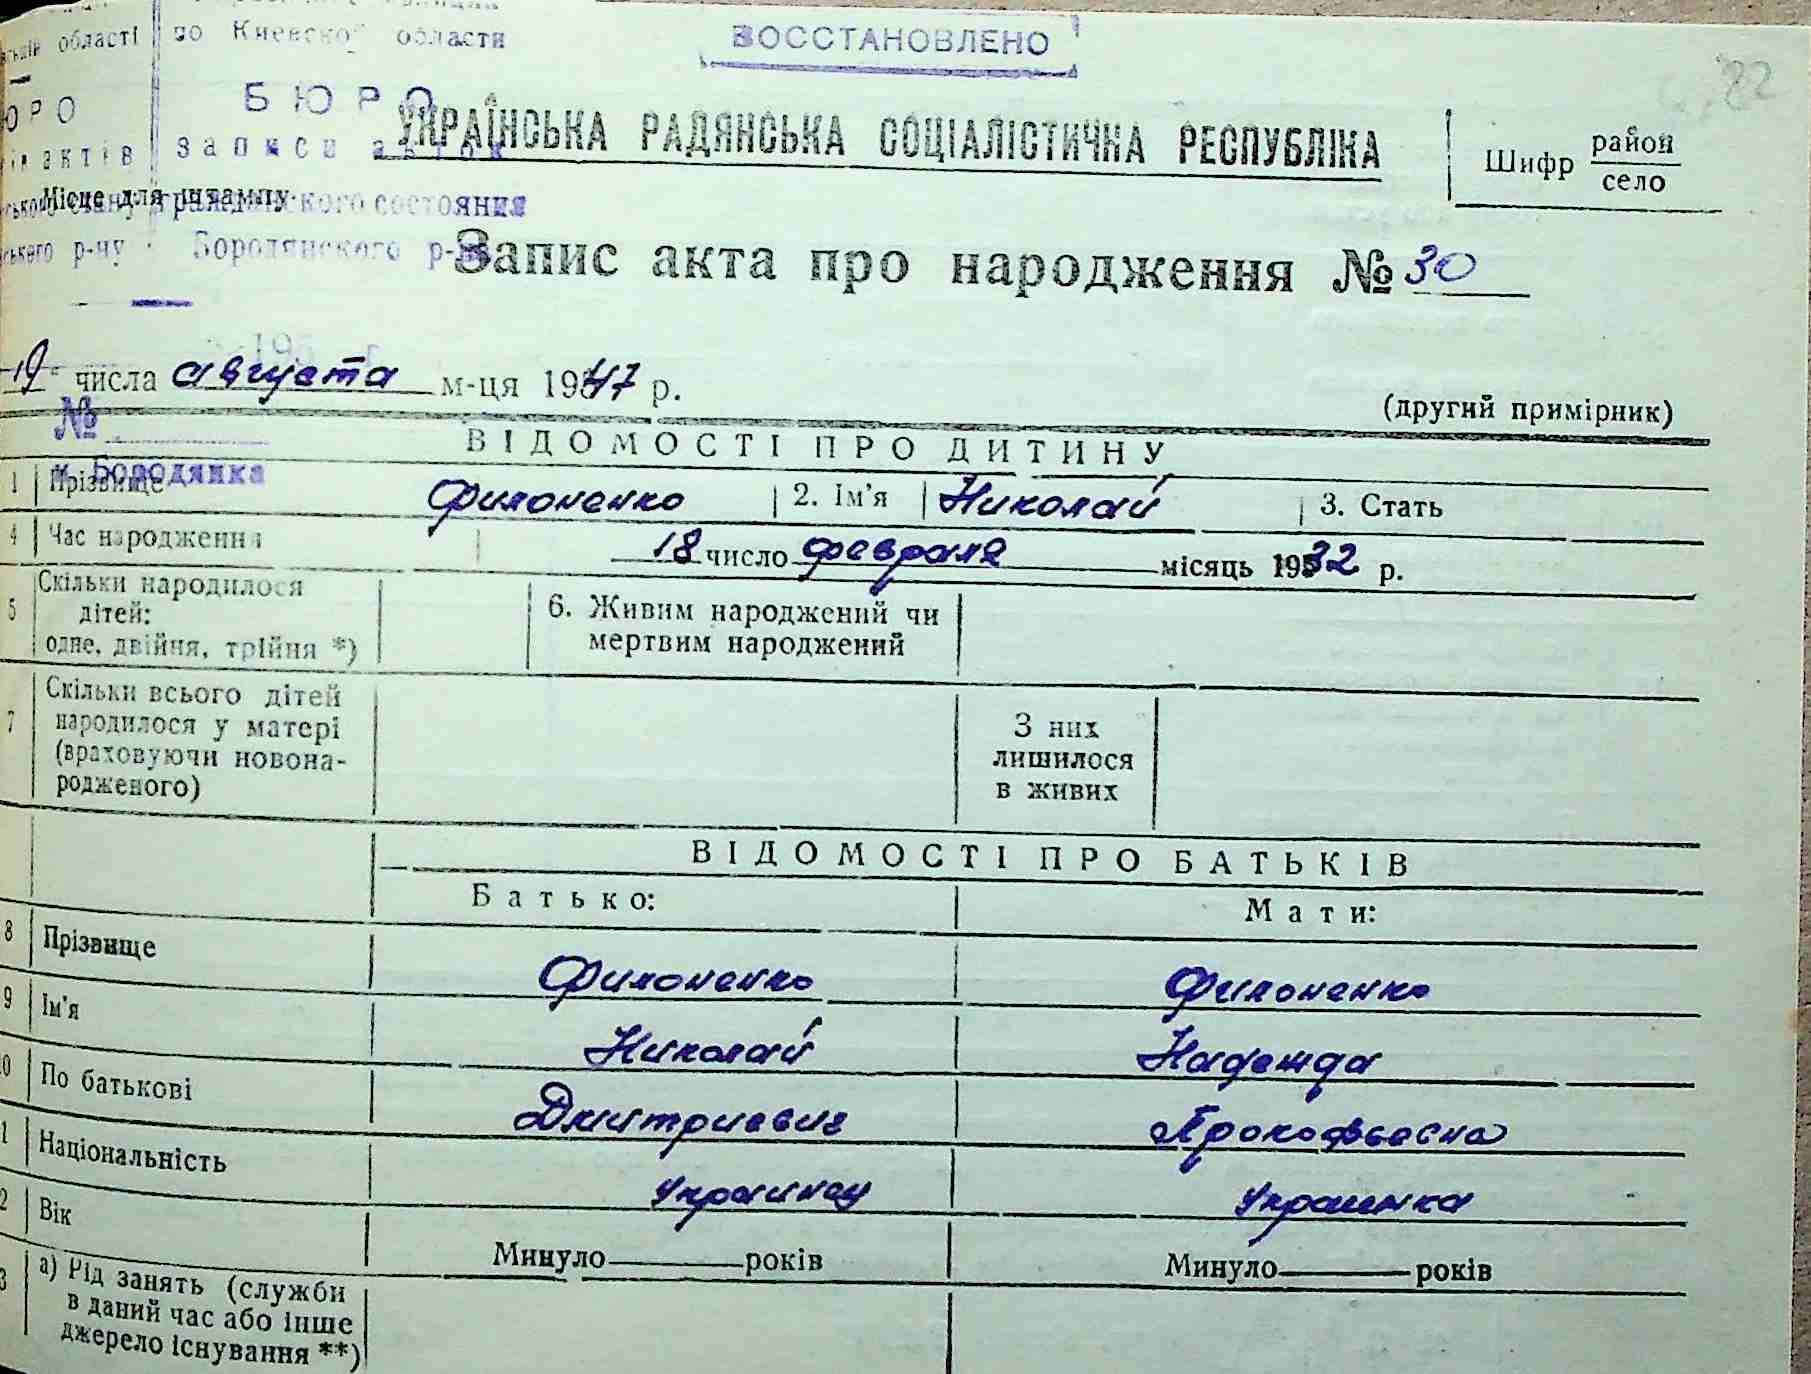 області по Киевской области
ВОССТАНОВЛЕНО
82
БЮРО
УКРАЇНСЬКА РАДЯНСЬКА СОЦІАЛІСТИЧНА РЕСПУБЛІКА
Шифр район
село
актів записи актов
Місце для штампу
гражданского состояния
р-ну Бородянского р-на
Запис акта про народження № 30
19 числа августа м-ця 1947 р.
(другий примірник)
№
Бородянка
ВІДОМОСТІ ПРО ДИТИНУ
1 Прізвище Филоненко 2. Ім'я Николай 3. Стать
4 Час народження 18 число февраля місяць 1932 р.
5 Скільки народилося
дітей:
одне, двійня, трійня *)
6. Живим народжений чи
мертвим народжений
7 Скільки всього дітей
народилося у матері
(враховуючи новона-
родженого)
З них
лишилося
в живих
ВІДОМОСТІ ПРО БАТЬКІВ
Батько: Мати:
8 Прізвище Филоненко Филоненко
9 Ім'я Николай Надежда
0 По батькові Дмитриевич Прокофьевна
1 Національність украинец украинка
2 Вік Минуло років Минуло років
3 а) Рід занять (служби
в даний час або інше
джерело існування **)